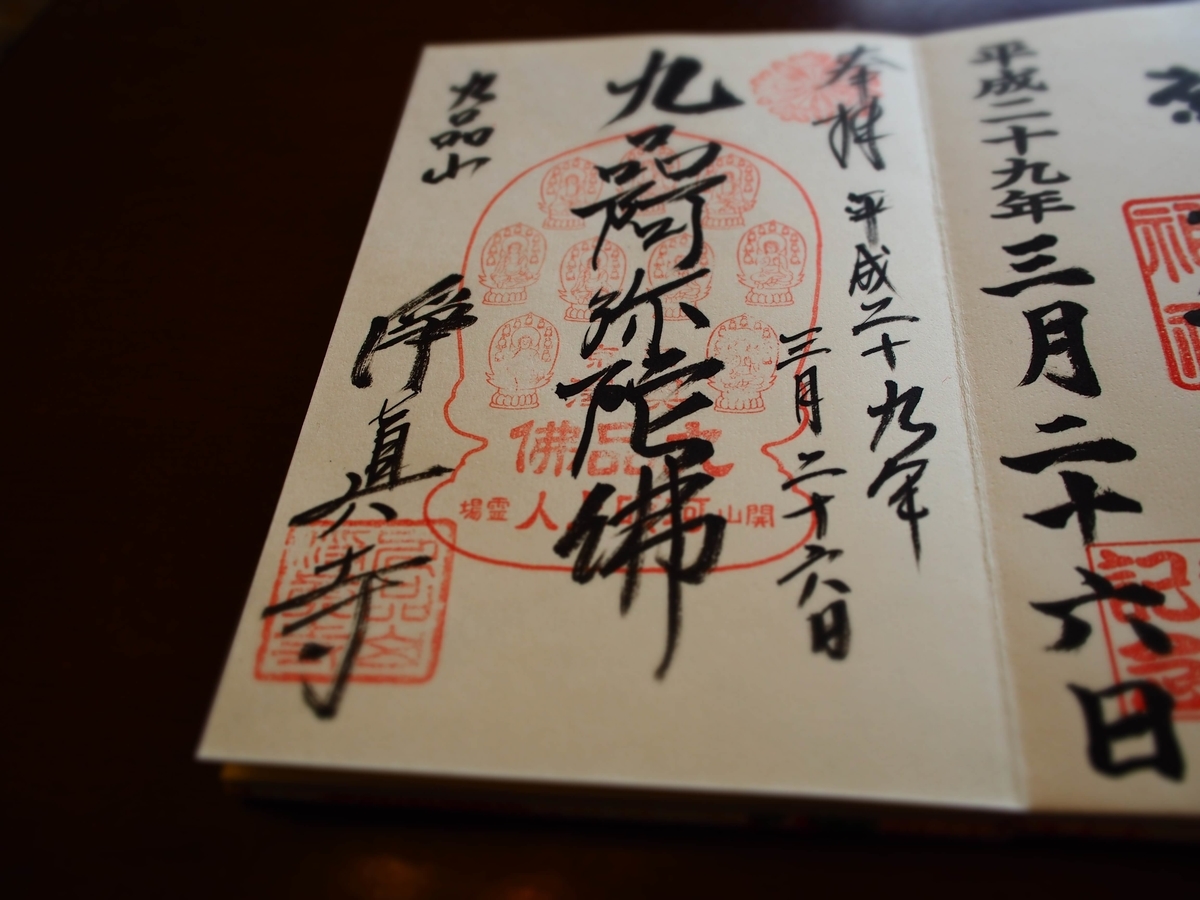 平成二十九年三月二十六日
奉拝 平成二十九年
三月二十六日
九品阿弥陀佛
九品山
淨真寺
九品佛
開山
人
霊場